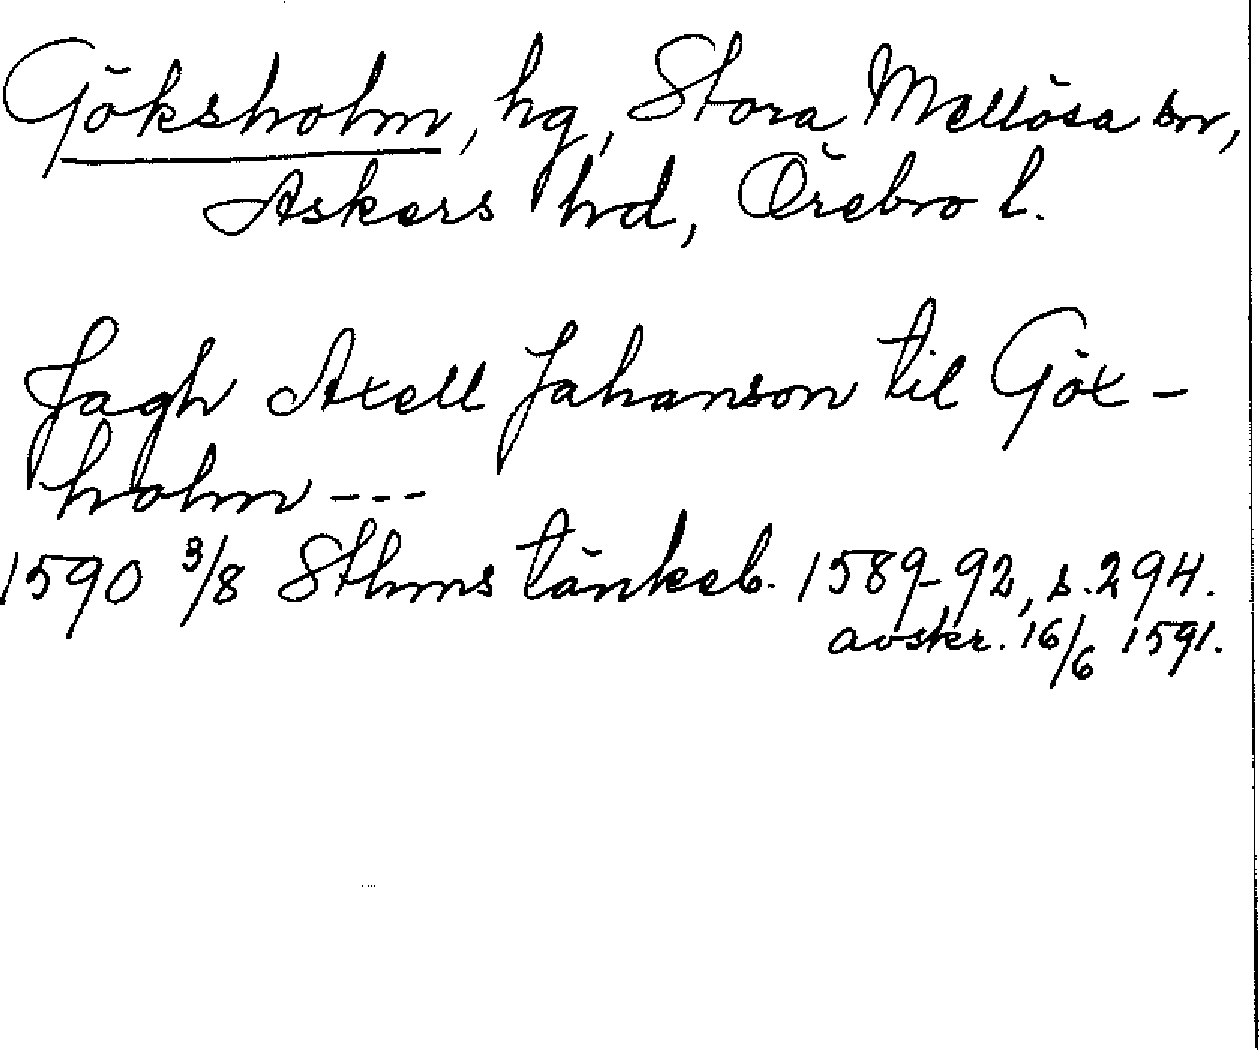 Göksholm, hg, Stora Mellösa sn,
Askers hd, Örebro l.
Jagh Axell Jahanson til Göx-
holm ---
1590 3/8 Sthms tänkeb. 1589-92, s. 294.
avskr. 16/6 1591.